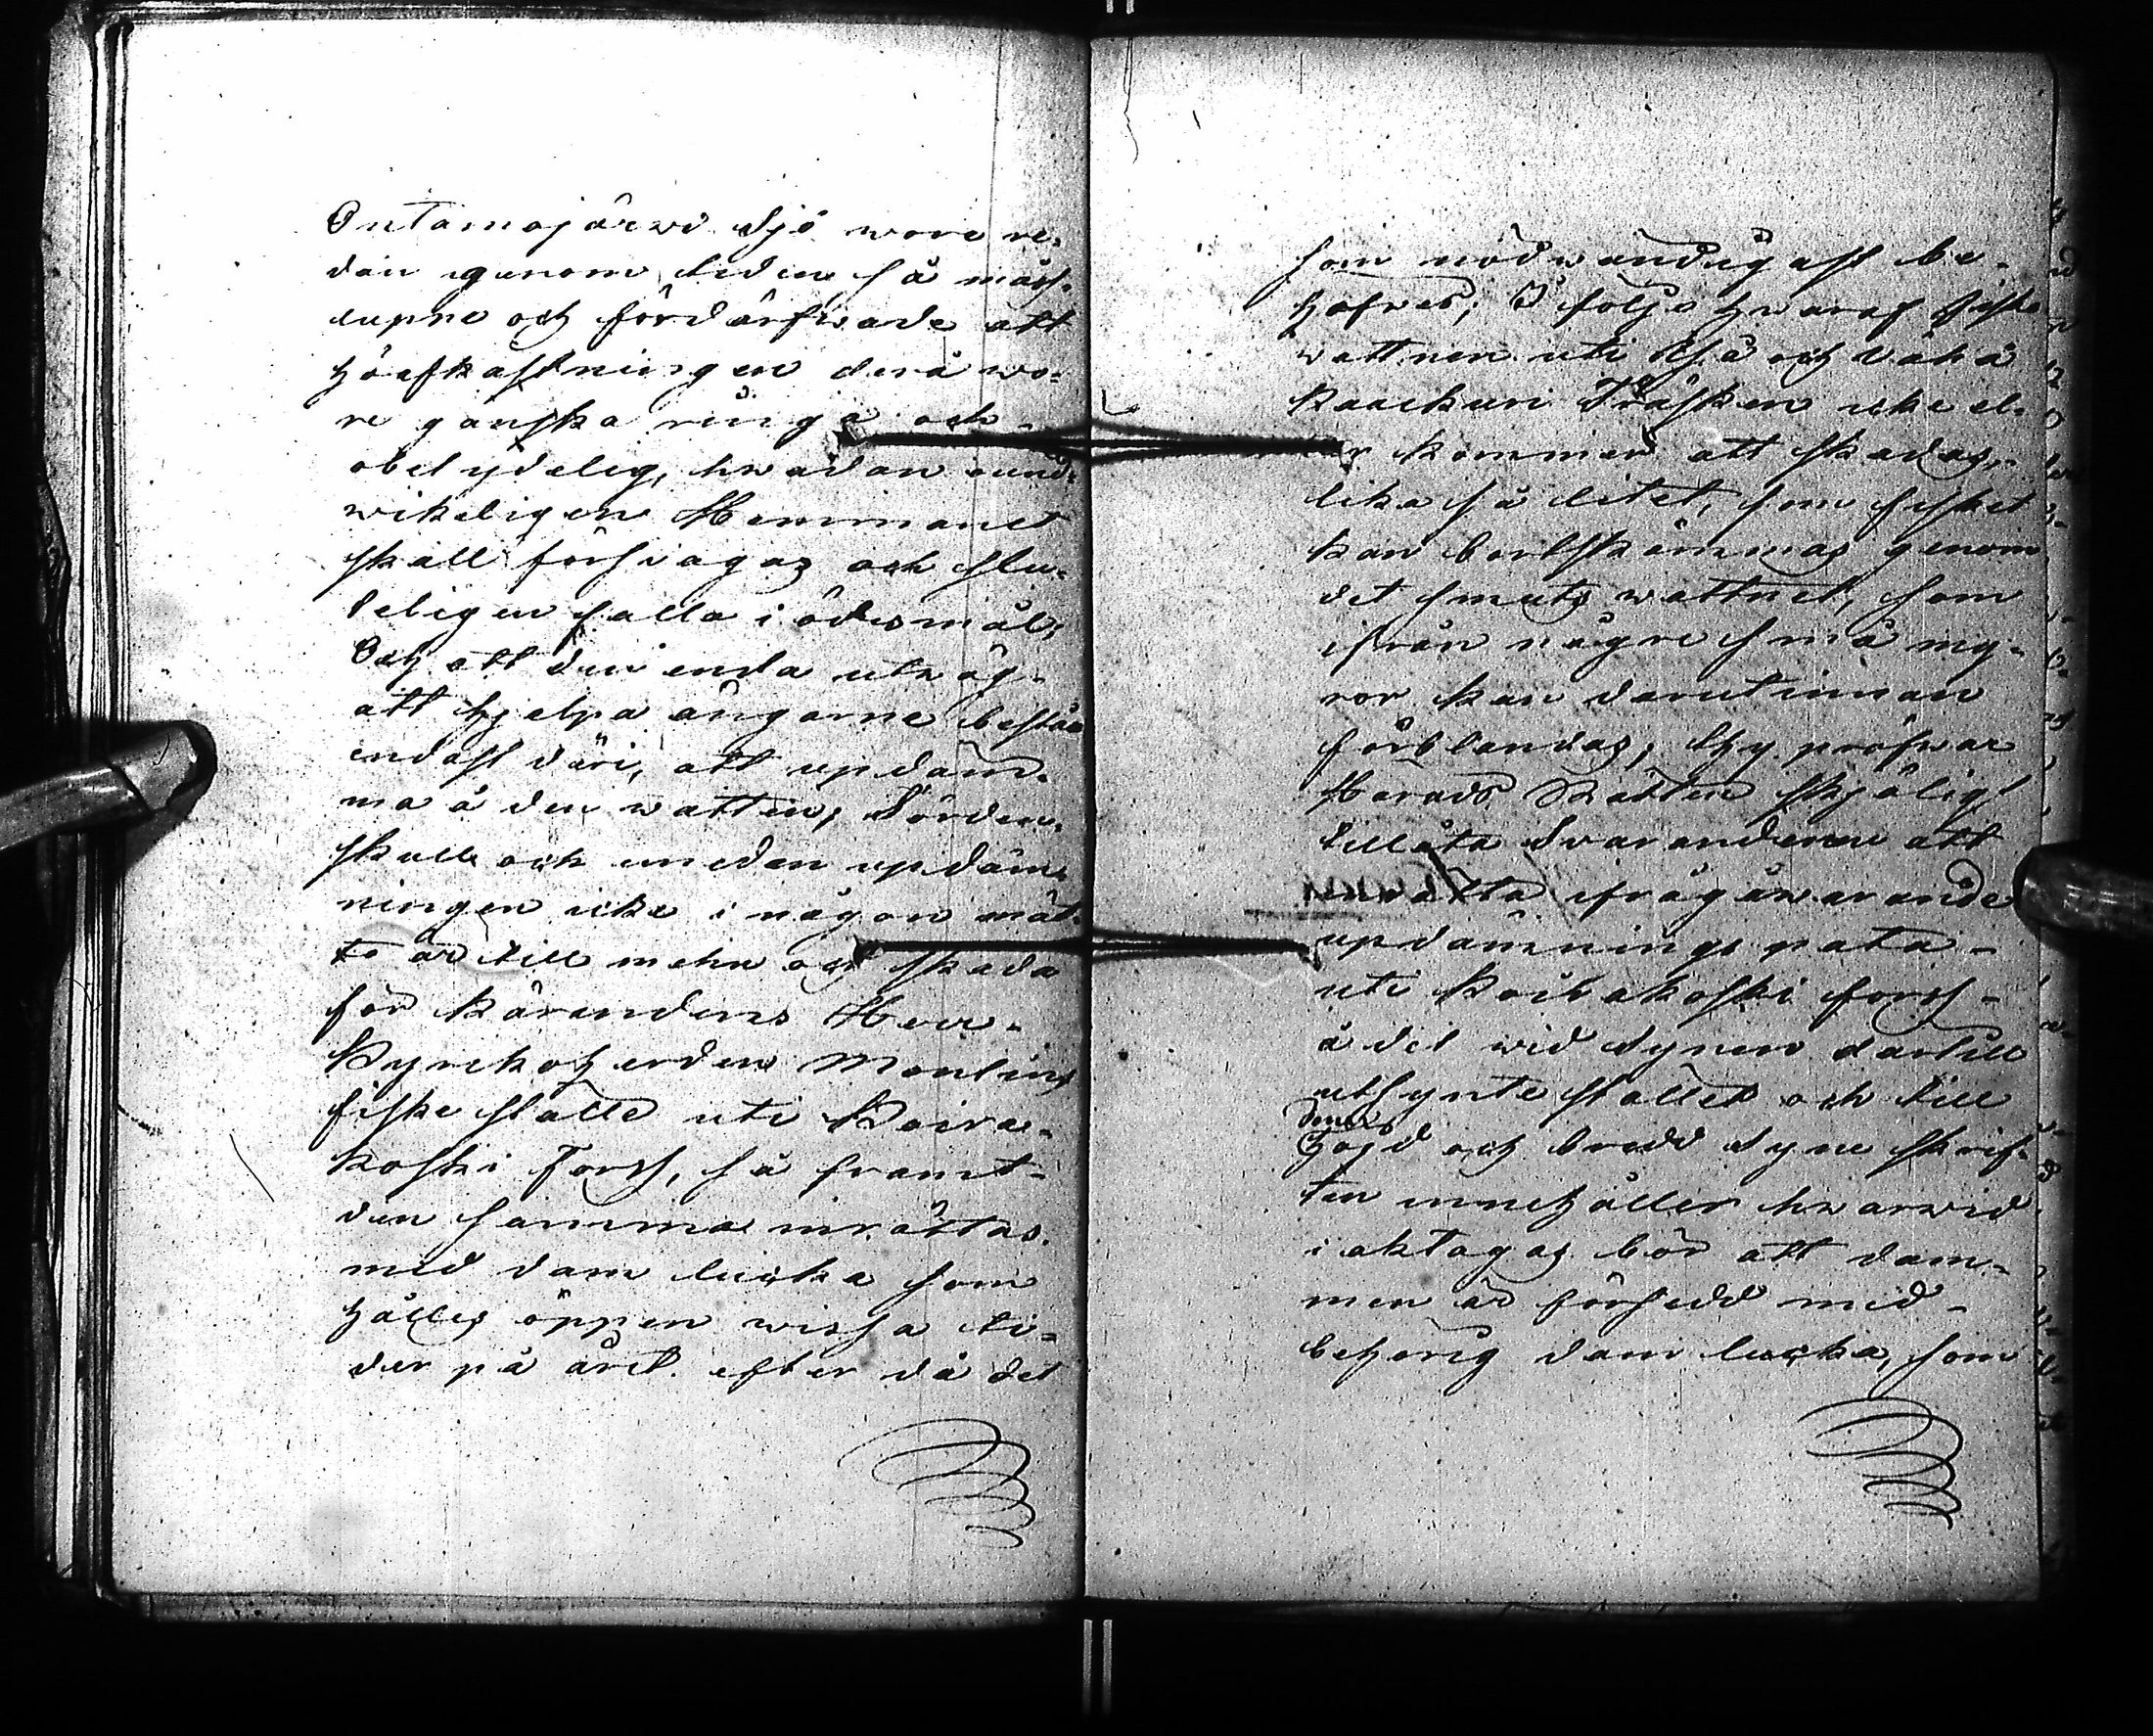 Ontamojärwi Sjö wore re-
dan genom tiden så måss-
lupne och fördärfwade att
höafkastningen derå wo-
re ganska ringa och
obetydelig, hwadan ound-
wikeligen Hemmanet
skall försvagas och slu-
teligen falla i ödesmål;
Och att den enda utväg
att hjelpa ängarne består
endast däri, att updäm-
ma å den watten; Sörden-
skull och emedan updäm-
ningen icke i någon måt-
to är till mehn och skada
för Kärandens Herr
Kyrkoherden Montins
fiske ställe uti Koira-
koski Fors, så framt
den samma inrättas
med dam lucka som
hålles öppen wissa ti-
der på året efter då det
som nödwändigast be-
höfwes; I följe hwaraf fiske
wattnen uti Iså och Vähä
Kaackuri Träsken icke el-
ler kommer att skadas,
lika så litet, som fisket
kan bortskämmas genom
det smuts wattnet, som
ifrån någre små my-
ror kan darutinnan
förblandas; Thy pröfwar
Härads Rätten skjäligt
tillåta Svaranderne att
inrätta ifrågawarande
updämnings pata
uti Koirakoski fors
å det wid Synen dartill
utsynte stället och till
den
höjd och bredd Syne skrif-
ten innehåller hwarwid
iakttagas bör att dam-
men är försedd med
behörig dam lucka, som